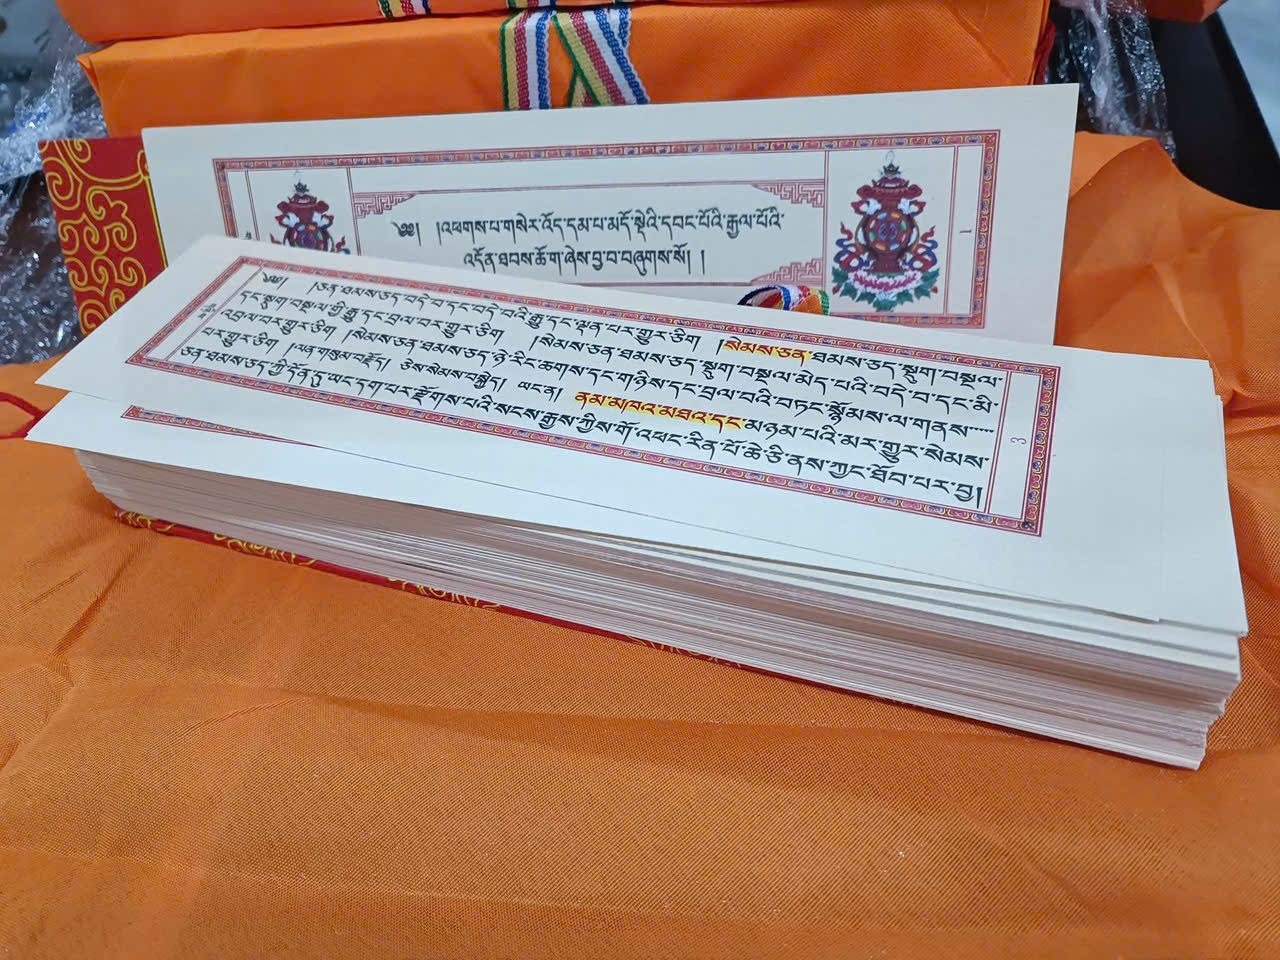 ༄༅། །འཕགས་པ་གསེར་འོད་དམ་པ་མདོ་སྡེའི་དབང་པོའི་རྒྱལ་པོའི་
འདོན་ཐབས་ཆོ་ག་ཞེས་བྱ་བ་བཞུགས་སོ། །
༄༅། །ཅན་ཐམས་ཅད་བདེ་བ་དང་བདེ་བའི་རྒྱུ་དང་ལྡན་པར་གྱུར་ཅིག །སེམས་ཅན་ཐམས་ཅད་སྡུག་བསྔལ་
དང་སྡུག་བསྔལ་གྱི་རྒྱུ་དང་བྲལ་བར་གྱུར་ཅིག །སེམས་ཅན་ཐམས་ཅད་སྡུག་བསྔལ་མེད་པའི་བདེ་བ་དང་མི་
འབྲལ་བར་གྱུར་ཅིག །སེམས་ཅན་ཐམས་ཅད་ཉེ་རིང་ཆགས་དང་གཉིས་དང་བྲལ་བའི་བཏང་སྙོམས་ལ་གནས་་་་་
བར་གྱུར་ཅིག །ལན་གསུམ་བརྗོད། ཅེས་སེམས་བསྐྱེད། ཡང་ན། ནམ་མཁའ་མཐའ་དང་མཉམ་པའི་མར་གྱུར་སེམས་
ཅན་ཐམས་ཅད་ཀྱི་དོན་དུ་ཡང་དག་པར་རྫོགས་པའི་སངས་རྒྱས་ཀྱིས་གོ་འཕང་རིན་པོ་ཆེ་ཅི་ནས་ཀྱང་ཐོབ་པར་བྱ།
1
3